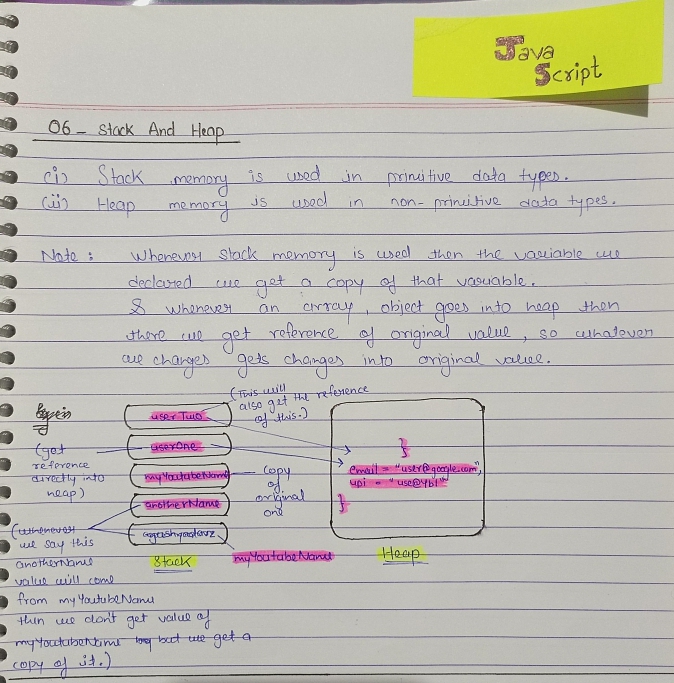 Java
Script
06 - Stack And Heap
(i) Stack memory is used in primitive data types.
(ii) Heap memory is used in non-primitive data types.
Note : Whenever stack memory is used then the variable we
declared we get a copy of that variable.
& whenever an array, object goes into heap then
there we get reference of original value, so whatever
we changes gets changes into original value.
(This will
also get the reference
of this.)
user Two
(get
reference
directly into
heap)
userOne
myYoutubeName
anotherName
copy
of
original
one
}
email = "user@google.com",
upi = "use@ybl"
}
Stack
myYoutubeName
Heap
(whenever
we say this
anotherName
value will come
from myYoutubeName
then we don't get value of
myYoutubeName but we get a
copy of it.)